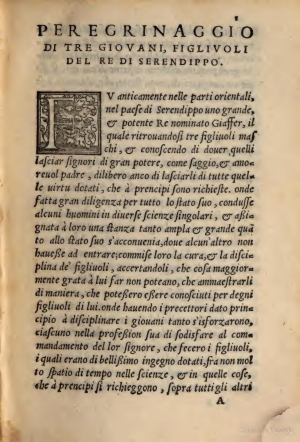 PEREGRINAGGIO
DI TRE GIOVANI, FIGLIVOLI
DEL RE DI SERENDIPPO.
FV anticamente nelle parti orientali,
nel paese di Serendippo uno grande,
& potente Re nominato Giaffer, il
quale ritrouandosi tre figliuoli mas
chi, & conoscendo di douer quelli
lasciar signori di gran potere, come saggio, & amo-
reuol padre, dilibero anco di lasciarli di tutte quel-
le uirtu dotati, che à prencipi sono richieste. onde
fatta gran diligenza per tutto lo stato suo, condusse
alcuni huomini in diuerse scienze singolari, & aßi-
gnata à loro una stanza tanto ampla & grande quã
to allo stato suo s'acconuenia, doue alcun'altro non
hauesse ad entrare; commise loro la cura, & la disci-
plina de' figliuoli, accertandoli, che cosa maggior-
mente grata à lui far non poteano, che ammaestrarli
di maniera, che potessero essere conosciuti per degni
figliuoli di lui. onde hauendo i precettori dato prin-
cipio à disciplinare i giouani tanto s'isforzarono,
ciascuno nella professìon sua di sodisfare al com-
mandamento del lor signore, che fecero i figliuoli,
i quali erano di bellißimo ingegno dotati, fra non mol
to spatio di tempo nelle scienze, & in quelle cose,
che à prencipi si richieggono, sopra tutti gli altri
A